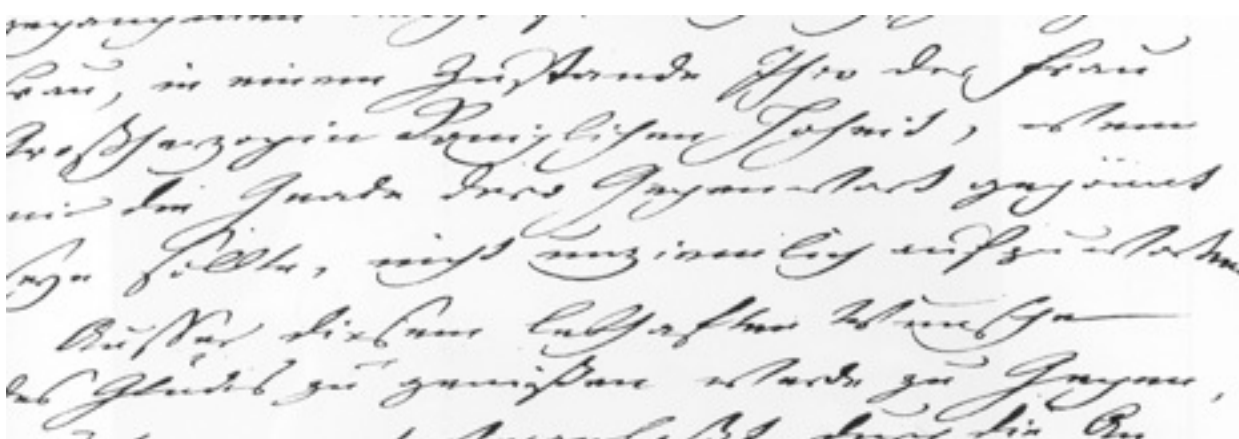 Frau, in einem Zustande Ihro der Frau
Großherzogin Königlichen Hoheit, wenn
mir die Gnade dero Gegenwart gegönnt
seyn sollte, nicht unziemlich aufzuwarten
Ausser diesem lebhaften Wunsche
des Glückes zu genießen werde zu Gegen,
durch die An